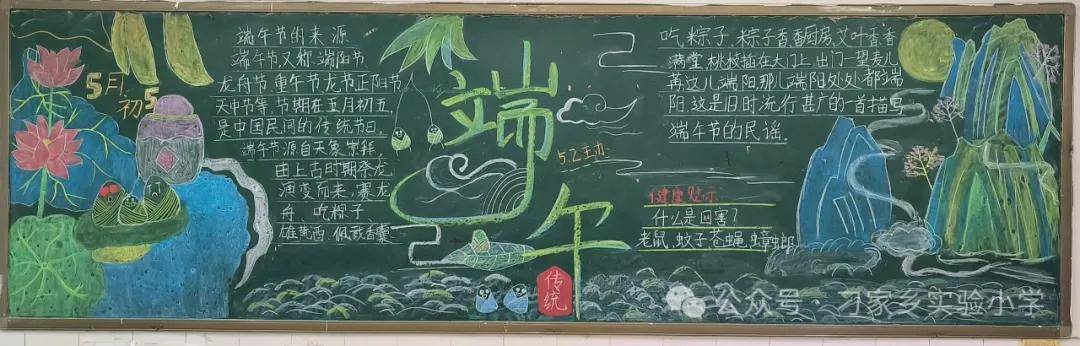 5月
初5
端午节的来源
端午节又称端阳节
龙舟节,重午节龙节正阳节
天中节等,节期在五月初五,
是中国民间的传统节日。
端午节源自天象崇拜
由上古时期祭龙
演变而来,赛龙
舟、吃粽子
雄黄酒、佩戴香囊
端午
传统
5.2主办
吃粽子,粽子香香厨房,艾叶香香
满堂,桃枝插在大门上,出门一望麦儿
再这儿端阳,那儿端阳处处都端
阳,这是旧时流行甚广的一首描写
端午节的民谣。
健康贴示
什么是四害?
老鼠、蚊子苍蝇,蟑螂
公众号·刁家乡实验小学